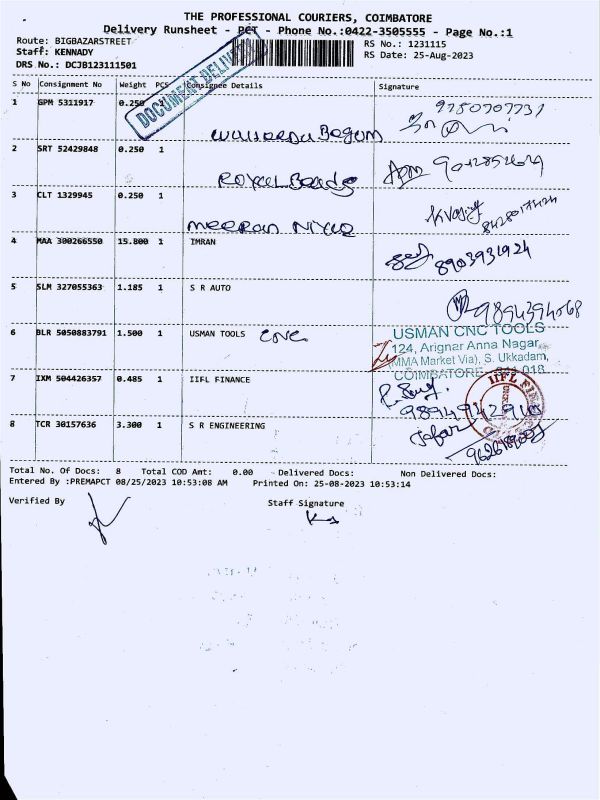 THE PROFESSIONAL COURIERS, COIMBATORE
Delivery Runsheet - PCT - Phone No.:0422-3505555 - Page No.:1
Route: BIGBAZARSTREET RS No.: 1231115
Staff: KENNADY RS Date: 25-Aug-2023
DRS No.: DCJB123111501
DOCUMENT DELIVERY
S No Consignment No Weight PCS Consignee Details Signature
1 GPM 5311917 0.250 9750707731
Begum
2 SRT 52429848 0.250 1
Royal Beads
3 CLT 1329945 0.250 1
MEERAN
4 MAA 300266550 15.800 1 IMRAN 8903931924
5 SLM 327055363 1.185 1 S R AUTO 9894394068
6 BLR 5050883791 1.500 1 USMAN TOOLS
USMAN CNC TOOLS
124, Arignar Anna Nagar,
(MMA Market Via), S. Ukkadam,
COIMBATORE - 641 018
7 IXM 504426357 0.485 1 IIFL FINANCE
IIFL
8 TCR 30157636 3.300 1 S R ENGINEERING Jafar
Total No. Of Docs: 8 Total COD Amt: 0.00 Delivered Docs: Non Delivered Docs:
Entered By :PREMAPCT 08/25/2023 10:53:08 AM Printed On: 25-08-2023 10:53:14
Verified By Staff Signature